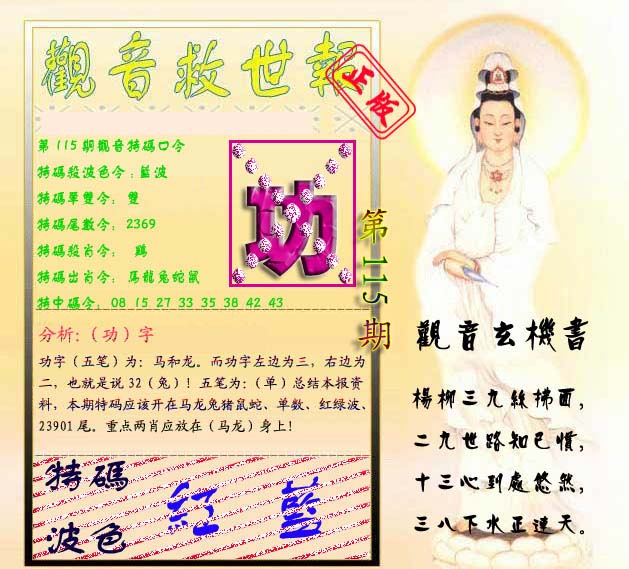 觀音救世報
正版
第115期觀音特碼口令
特碼殺波色令：藍波
特碼單雙令： 雙
特碼尾數令： 2369
特碼殺肖令： 鷄
特碼出肖令： 馬龍兔蛇鼠
特中碼令： 08 15 27 33 35 38 42 43
功
第115期
分析：（功）字
功字（五笔）为：马和龙。而功字左边为三，右边为
二，也就是说 32（兔）！五笔为：（单）总结本报资
料，本期特码应该开在马龙兔猪鼠蛇、单数、红绿波、
23901 尾。重点两肖应放在（马龙）身上！
特碼
波色
紅 藍
觀音玄機書
楊柳三九絲拂面，
二九世路知已慣，
十三心到處悠然，
三八下水正連天。